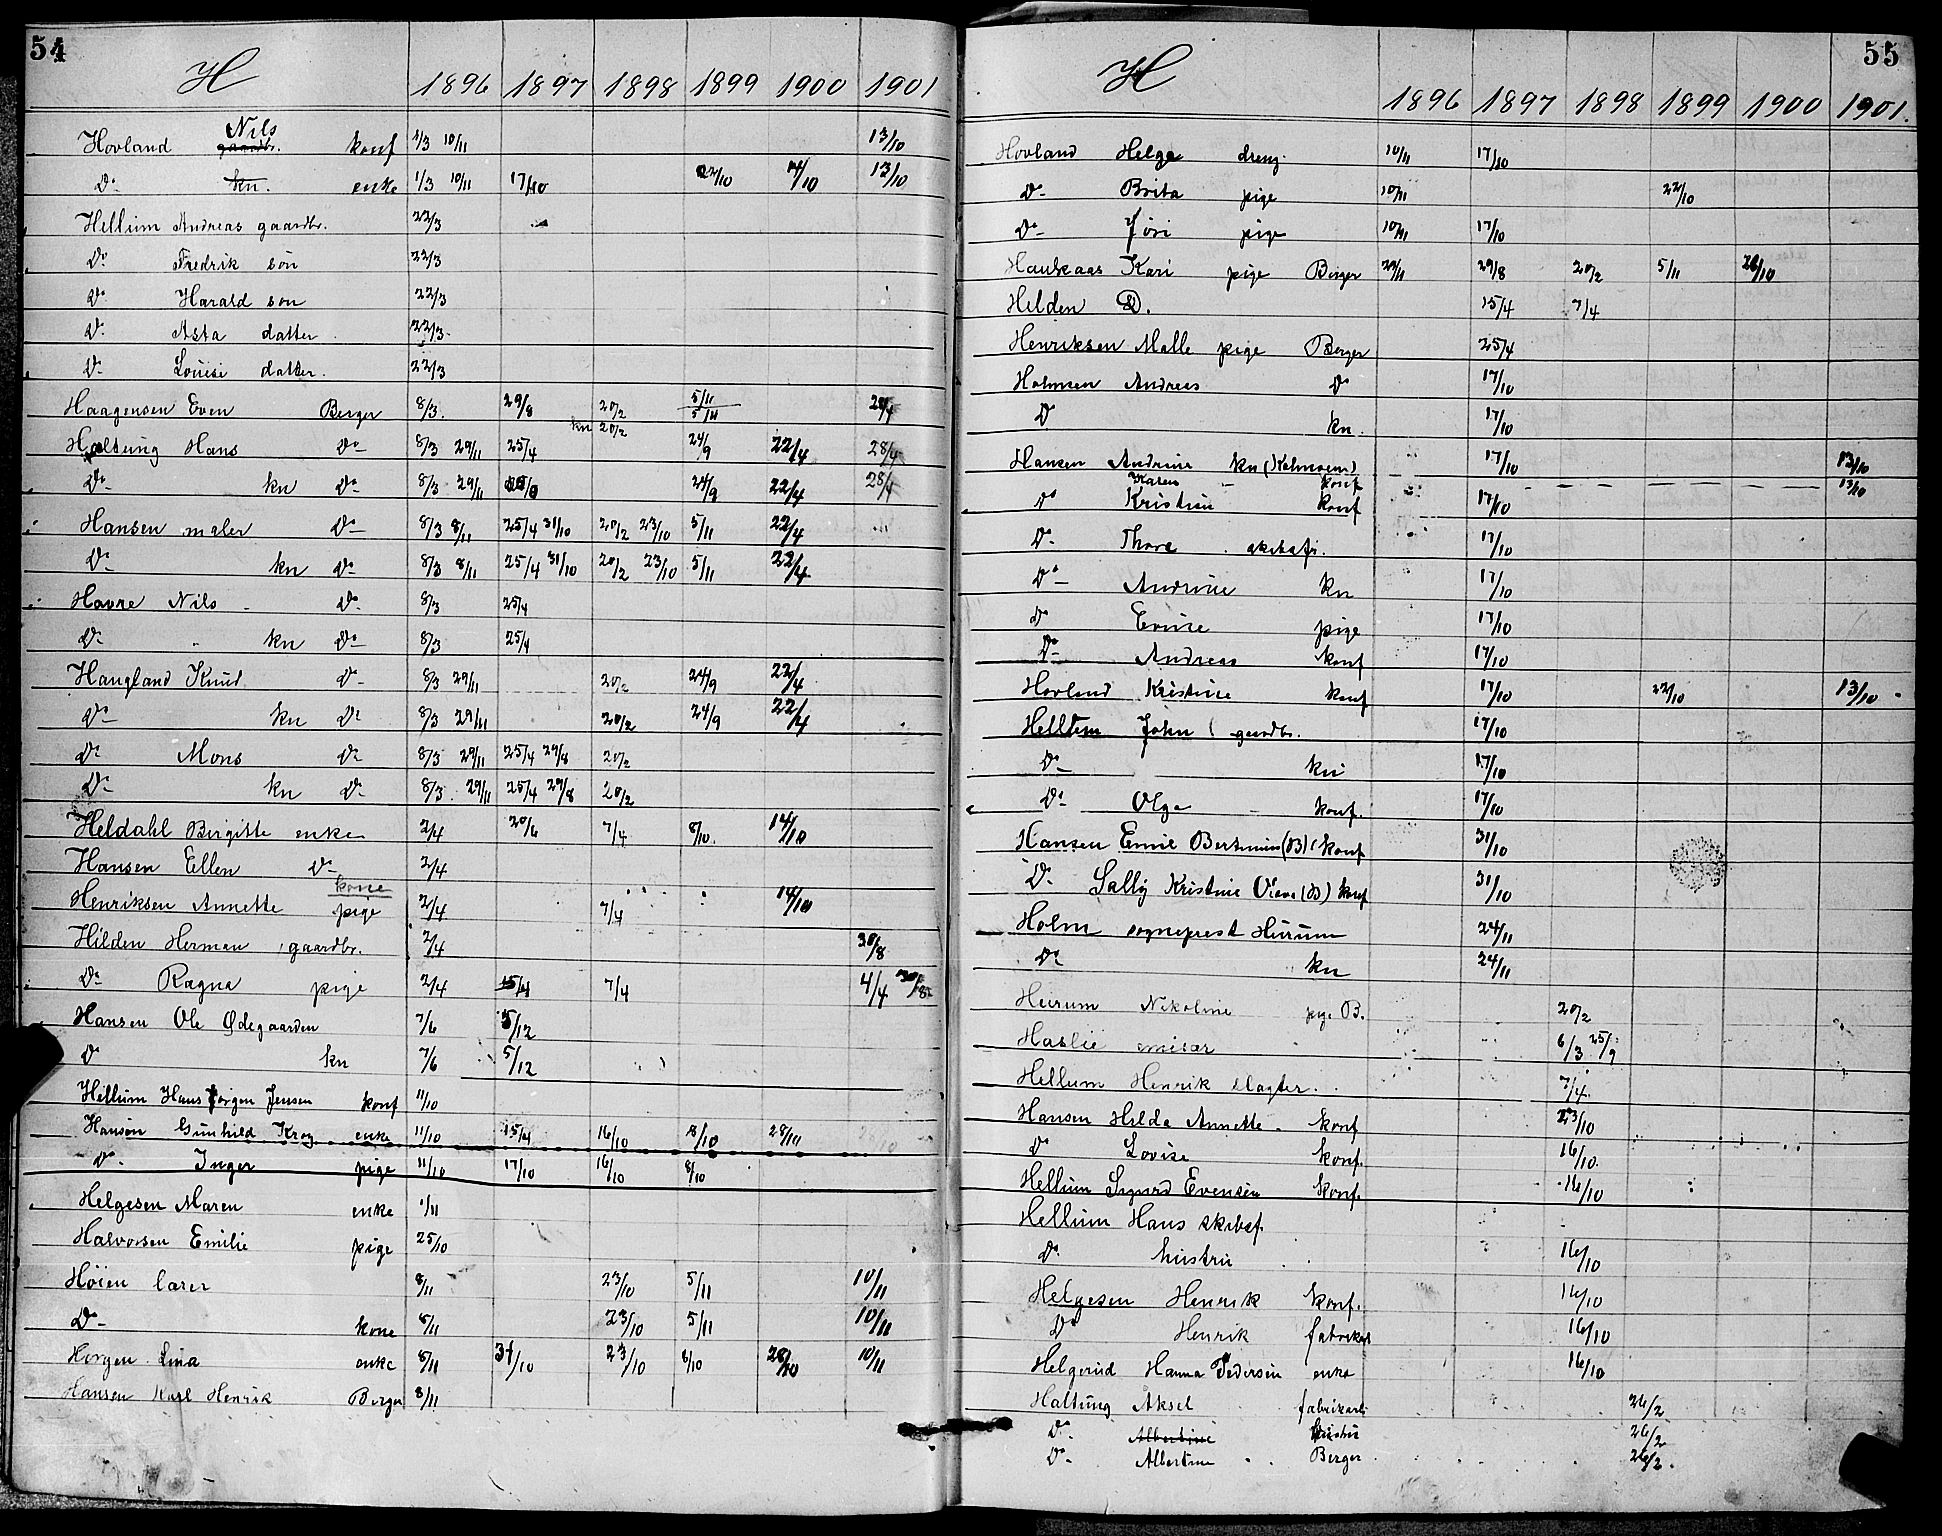 54
H 1896 1897 1898 1899 1900 1901
Hovland Nils gaardbr. konf 1/3 10/11 13/10
Do kn. enke 1/3 10/11 17/10 22/10 14/10 13/10
Hellum Andreas gaardbr. 22/3
Do Fredrik søn 22/3
Do Harald søn 22/3
Do Asta datter 22/3
Do Louise datter. 22/3
Haagensen Even Berger 8/3 29/8 20/2 5/11 5/11 28/4
kn 20/2
Haltung Hans Do 8/3 29/11 25/4 24/9 22/4 28/4
Do kn Do 8/3 29/11 24/9 22/4 28/4
Hansen maler Do 8/3 8/11 25/4 31/10 20/2 23/10 5/11 22/4
Do kn Do 8/3 8/11 25/4 31/10 20/2 23/10 5/11 22/4
Havre Nils Do 8/3 25/4
Do kn Do 8/3 25/4
Haugland Knud Do 8/3 29/11 20/2 24/9 22/4
Do kn Do 8/3 29/11 20/2 24/9 22/4
Do Mons Do 8/3 29/11 25/4 29/8 20/2
Do kn Do 8/3 29/11 25/4 29/8 20/2
Heldahl Birgitte enke 2/4 20/6 7/4 8/10 14/10
Hansen Ellen Do 2/4
kone
Henriksen Annette pige 2/4 7/4 14/10
Hilden Herman gaardbr. 2/4 30/8
Do Ragna pige 2/4 15/4 7/4 4/4 30/8
Hansen Ole Ødegaarden 7/6 5/12
Do kn 7/6 5/12
Hellum Hans Jørgen Jensen konf 11/10
Hansen Gunhild Krog enke 11/10 15/4 16/10 8/10 28/10
Do Inger pige 11/10 17/10 16/10 8/10
Helgesen Maren enke 1/11
Halvorsen Emilie pige 25/10
Høien lærer 8/11 23/10 5/11 10/11
Do kone 8/11 23/10 5/11 10/11
Horgen Lina enke 8/11 31/10 23/10 8/10 28/10 10/11
Hansen Karl Henrik Berger 8/11
55
H 1896 1897 1898 1899 1900 1901.
Hovland Helge dreng 10/11 17/10
Do Brita pige 10/11 22/10
Do Jøri pige 10/11 17/10
Haukaas Kari pige Berger 29/11 29/8 20/2 5/11 26/10
Helden D. 15/4 7/4
Henriksen Malle pige Berger 25/4
Holmsen Andreas Do 17/10
Do kn. 17/10
Hansen Andrine kn (Holmsem) 17/10 13/10
Karen konf 13/10
Do Kristine konf 17/10
Do Thora skibsfr. 17/10
Do Andrine kn 17/10
Do Emise pige 17/10
Do Andreas konf 17/10
Hovland Kristine konf 17/10 22/10 13/10
Hellum John gaardbr. 17/10
Do kn 17/10
Do Olga konf. 17/10
Hansen Emil Bertinius (B) konf 31/10
Do Sally Kristine Viava (B) konf 31/10
Holm sogneprest Hurum 24/11
Do kn 24/11
Hurum Nikoline pige B. 20/2
Haslie emisær 6/3 25/9
Hellum Henrik slagter. 7/4
Hansen Hilda Annette konf 23/10
Do Lovise konf. 16/10
Hellum Sigurd Evensen konf. 16/10
Hellum Hans skibsf.
Do hustru 16/10
Helgesen Henrik konf. 16/10
Do Henrik fabrikar 16/10
Helgerud Hanna Pedersen enke 16/10
Haltung Aksel fabrikarb 26/2
Do Albertine hustru 26/2
Do Albertine Berger 26/2.